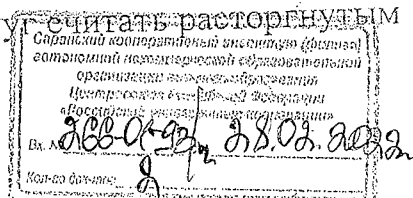 уг считать расторгнутым
Саранский кооперативный институт (филиал)
автономной некоммерческой образовательной
организации высшего образования
Центросоюза Российской Федерации
«Российский университет кооперации»
Вх. № 266-01-93/ 28.02.2022
Кол-во
2